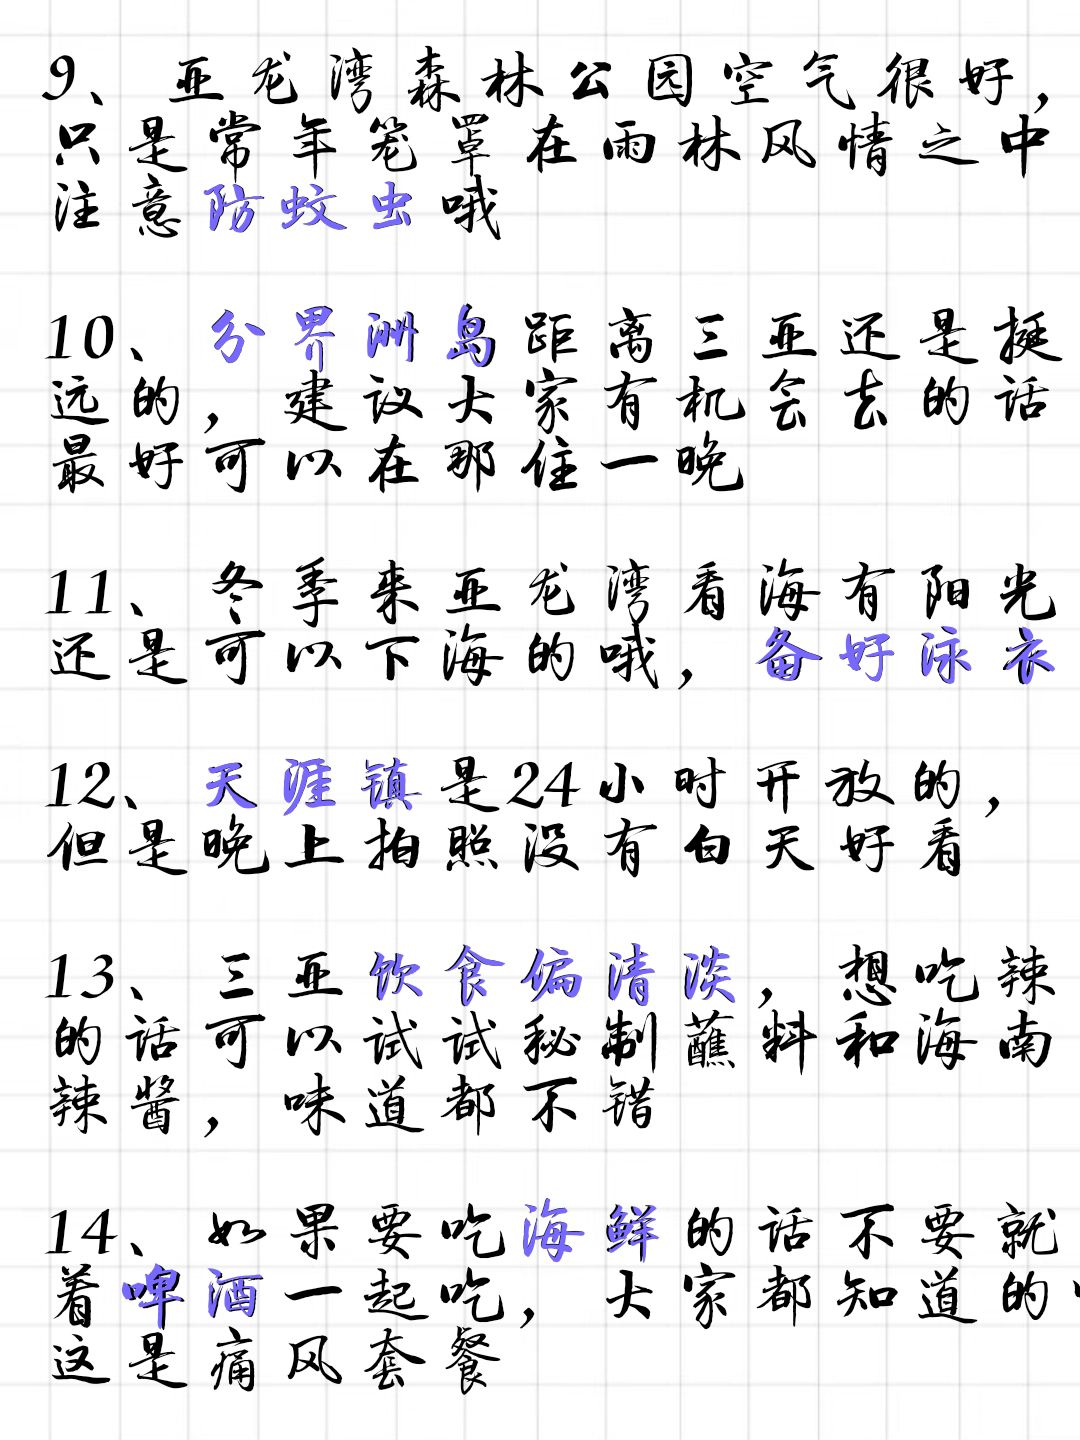 9、亚龙湾森林公园空气很好，
只是常年笼罩在雨林风情之中
注意防蚊虫哦
10、分界洲岛距离三亚还是挺
远的，建议大家有机会去的话
最好可以在那住一晚
11、冬季来亚龙湾看海有阳光
还是可以下海的哦，备好泳衣
12、天涯镇是24小时开放的，
但是晚上拍照没有白天好看
13、三亚饮食偏清淡，想吃辣
的话可以试试秘制蘸料和海南
辣酱，味道都不错
14、如果要吃海鲜的话不要就
着啤酒一起吃，大家都知道的
这是痛风套餐